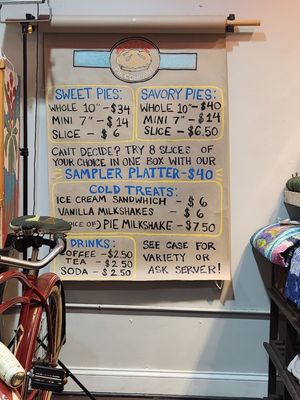 SWEET PIES:
WHOLE 10" - $34
MINI 7" - $14
SLICE - $6
SAVORY PIES:
WHOLE 10" - $40
MINI 7" - $14
SLICE - $6.50
CAN'T DECIDE? TRY 8 SLICES OF
YOUR CHOICE IN ONE BOX WITH OUR
SAMPLER PLATTER - $40
COLD TREATS:
ICE CREAM SANDWHICH - $6
VANILLA MILKSHAKES - $6
OF) PIE MILKSHAKE - $7.50
DRINKS:
COFFEE - $2.50
TEA - $2.50
SODA - $2.50
SEE CASE FOR
VARIETY OR
ASK SERVER!